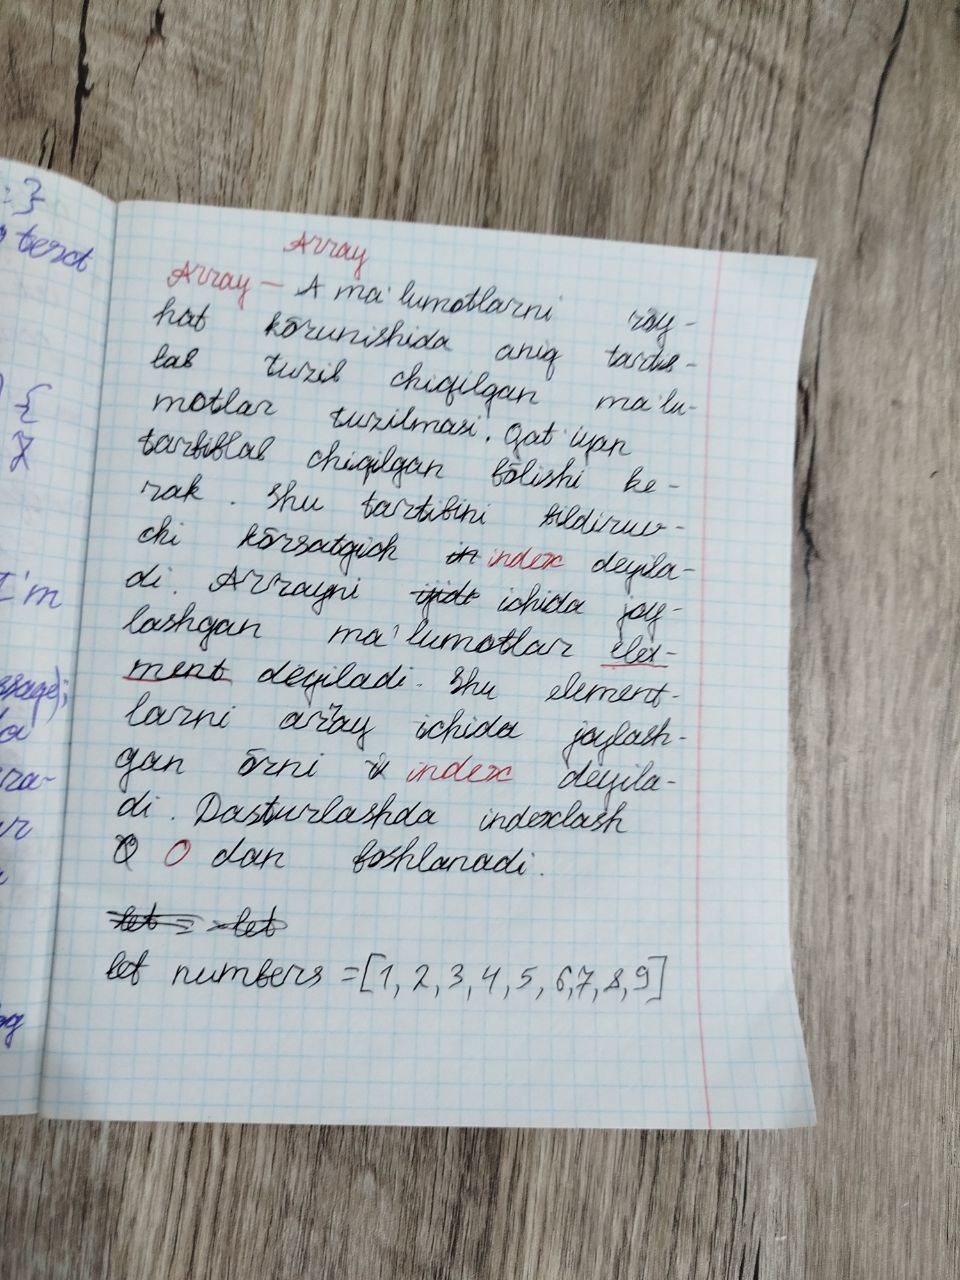 Array
Array - A ma'lumotlarni röy-
hat körunishida aniq tartib-
lab tuzib chiqilgan ma'lu-
motlar tuzilmasi. Qat'iyan
tartiblab chiqilgan bölishi ke-
rak. Shu tartibini bildiruv-
chi körsatgich in index deyila-
di. Arrayni ijidi ichida joy-
lashgan ma'lumotlar ele-
ment deyiladi. Shu element-
larni array ichida joylash-
gan örni i index deyila-
di. Dasturlashda indexlash
0 dan boshlanadi.
let = let
let numbers = [1, 2, 3, 4, 5, 6, 7, 8, 9]
: }
terat
{
I'm
ssage);
da